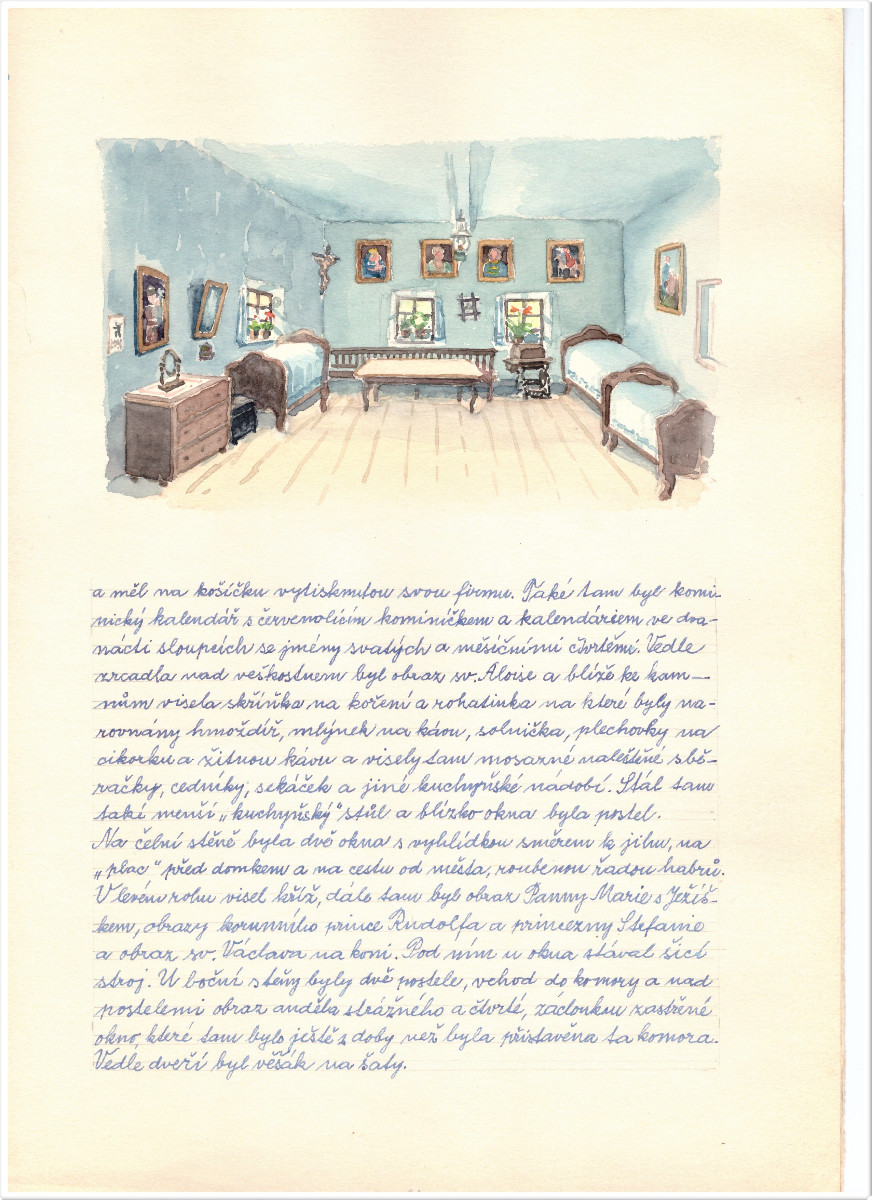 a měl na košíčku vytisknutou svou firmu. Také tam byl komi-
nický kalendář s červenolícím kominíčkem a kalendáriem ve dva-
nácti sloupcích se jmény svatých a měsíčními čtvrtěmi. Vedle
zrcadla nad veškostnem byl obraz sv. Aloise a blíže ke kam-
nům visela skříňka na koření a rohatinka na které byly na-
rovnány hmoždíř, mlýnek na kávu, solnička, plechovky na
cikorku a žitnou kávu a visely tam mosazné naleštěné sbě-
račky, cedníky, sekáček a jiné kuchyňské nádobí. Stál tam
také menší „kuchyňský" stůl a blízko okna byla postel.
Na čelní stěně byla dvě okna s vyhlídkou směrem k jihu, na
„plac" před domkem a na cestu od města, roubenou řadou habrů.
V levém rohu visel kříž, dále tam byl obraz Panny Marie s Ježíš-
kem, obrazy korunního prince Rudolfa a princezny Stefanie
a obraz sv. Václava na koni. Pod ním u okna stával šicí
stroj. U boční stěny byly dvě postele, vchod do komory a nad
postelemi obraz anděla strážného a čtvrté, záclonkou zastřené
okno, které tam bylo ještě z doby než byla přistavěna ta komora.
Vedle dveří byl věšák na šaty.